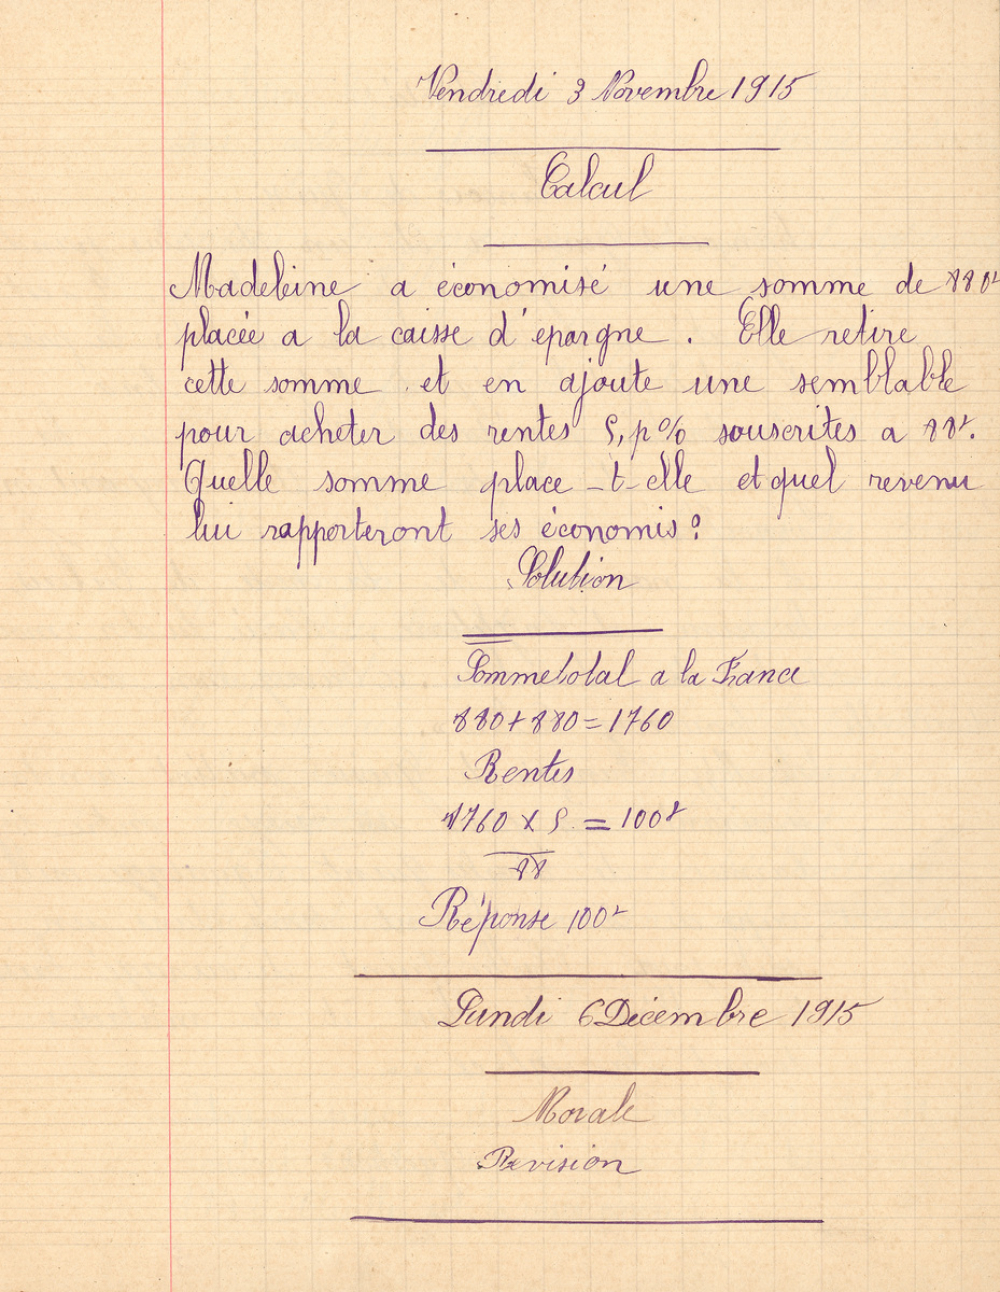 Vendredi 3 Novembre 1915
Calcul
Madeleine a économisé une somme de 880f
placée a la caisse d'epargne. Elle retire
cette somme et en ajoute une semblable
pour acheter des rentes 5 p% souscrites a 88f.
Quelle somme place-t-elle et quel revenu
lui rapporteront ses économis?
Solution
Somme total a la France
880+880=1760
Rentes
1760 x 5 = 100f
88
Réponse 100f
Lundi 6 Décembre 1915
Morale
Revision